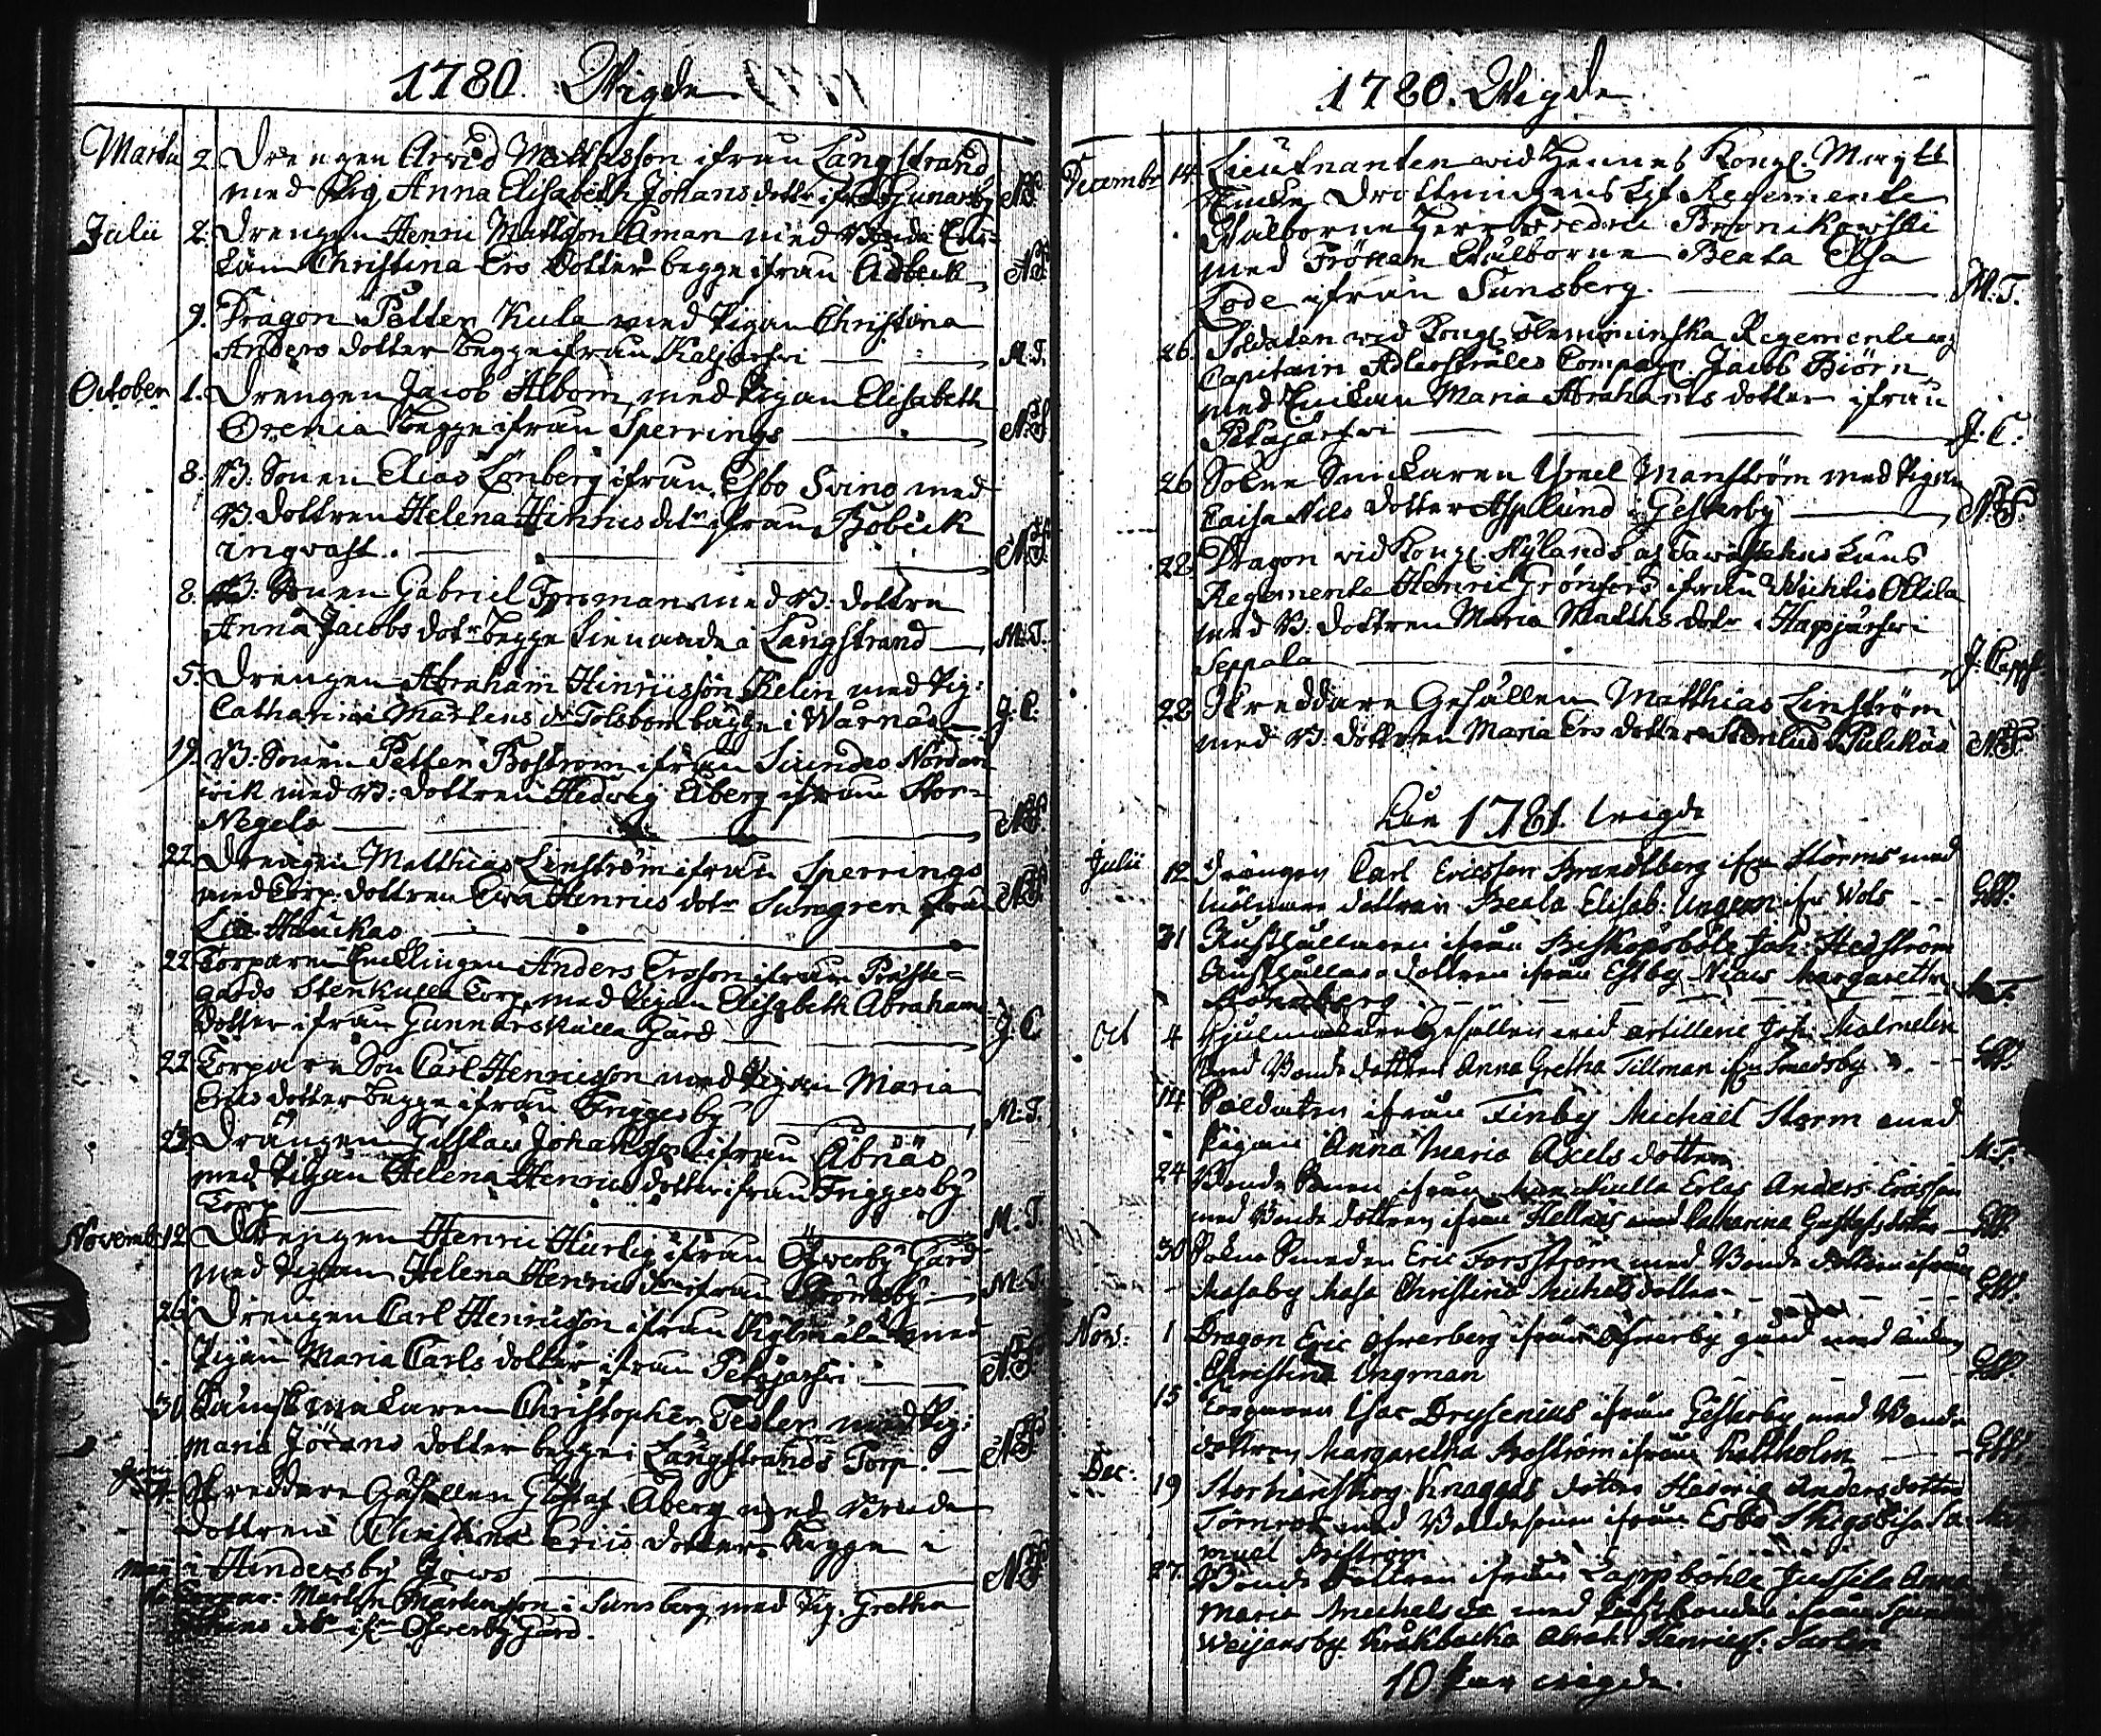 1780. Wigde
Martii 2. Drengen Arvid Mathsson ifrån Långstrand
med Pig. Anna Elisabeth Johans dottr ifrån Gunarsby
Julii 2. Drengen Henric Mattsson Åman med Bonde En-
kan Christina Ers Dotter begge ifrån Åbbeck
9. Dragon Petter Kula med Pigan Christina
Anders dotter begge ifrån Kaljärfwi M. T.
October 1. Drengen Jacob Albom med Pigan Elisabeth
Grenia begge ifrån Sperrings
8. B: Sonen Elias Lönberg ifrån Esbo Svinö med
B. dottren Helena Hinrics dotr ifrån Bobäck
ingvast.
8. B: Sonen Gabriel Forsman med B: dottren
Anna Jacobs dotr begge tienande i Långstrand M. T.
5. Drengen Abraham Hinricsson Kelin med Pig:
Catharina Mårtens dr Tolsbom bägge i Wårnäs J. C.
19. B: Sonen Petter Boström ifrån Siundeo Nordan
wik med B: dottren Hedwig Åberg ifrån Stor-
Negels
22. Drengen Matthias Linström ifrån Sperrings
med Torp. dottren Ewa Henrics dotr Sungren ifrån
Lill Haukas
22 Torparen Enklingen Anders Ersson ifrån Preste-
gårds Stenkulla Torp, med Pigan Elisabeth Abrahams
dotter ifrån Gunnarskulla Gård J. C
22 Torpare Son Carl Henricsson med Pigan Maria
Erics dotter begge ifrån Friggesby M. T.
23. Drängen Gustav Johansson ifrån Åbnäs
med Pigan Helena Henrics dotter ifrån Friggesby
Torp M. T.
Novemb: 12. Drengen Henric Hurtig ifrån Öfwerby Gård
med Pigan Helena Henrics dotr ifrån M. T.
26. Drengen Carl Henricsson ifrån Kylmälä med
Pigan Maria Carls dotter ifrån Petäjärfwi
30 Kamsk makaren Christopher Tesler med Pig:
Maria Jörans dotter begge i Långstrands Torp.
Skreddare Gesällen Gustaf Åberg med Bonde
dottren Christina Erics dotter, begge i
i Hindersby Göws
Torpar: Mårten Mårtensson i Sunsberg med Pig. Gretha
dotr ifrn Öfwerby Gård.
1780. Wigde
Decembr 14. Lieutnanten wid Hennes Kongl. Maytts
Enke Drottningens Lif Regemente
Wälborne Herr Fredric Bronikowski
med Fröken Wälborne Beata Elsa
Tode ifrån Sunsberg. M. T.
26. Soldaten wid Kongl. Regemente og
Capitain Adlerstråles Compagn. Jacob Biörn
med Enckan Maria Abrahams dotter ifrån
Petajärfwi J. C:
26 Sokne Snickaren Israel Manström med Pigan
Caisa Nils dotter Asplund i Gesterby
28. Dragon wid Kongl. Nylands og Tawastehus Läns
Regemente Henric Grönfors ifrån Wichtis Ollila
med B: dottren Maria Matths dotr i Haapjärfwi
Seppälä J. C.
28 Skreddare Gesällen Matthias Linström
med B: dottren Maria Ers dotter Stenlund i Pulckas
1781. wigde
Julii 12 Drängen Carl Ericsson Brandtberg ifrn Storms med
dottren Beata Elisab: Ungern ifrn Wols
21 Rusthållaren ifrån Biskopsböle Joh: Hedström
Rusthållare dottren ifrån Estby Niews Margaretha
Lönnberg
Oct 4 Hjulmakare Gesällen wid artillerie Joh: Malmelin
med Bonde dottren Anna Gretha Tillman ifrn Smedsby
14 Soldaten ifrån Finby Michael Storm med
Pigan Anna Maria Axels dotter
24 Bonde Sonen ifrån Erlas Anders Ersson
med Bonde dottren ifrån Hellnäs Catharina Gustafs dotter
30 Sokne Smeden Eric Forsström med Bonde dottren ifrån
Masaby Masa Christina Michels dotter
Nov: 1 Dragon Eric Öfwerberg ifrån Öfwerby gård med änkan
Christina Ungman
15 Torparen Isac Drysenius ifrån Gesterby med Bonde
dottren Margaretha Boström ifrån Kallholm
Dec: 19 Knaggas dotter Hedvig Anders dotter
Törnros med Bondesonen ifrån Esbo Sa-
muel
27. Bonde dottren ifrån Lappböhle Jussila Anna
Maria Michels dr med ifrån
Weijansby Kråkbacka Abrah: Henricss: Sarlin
10 Par wigde.